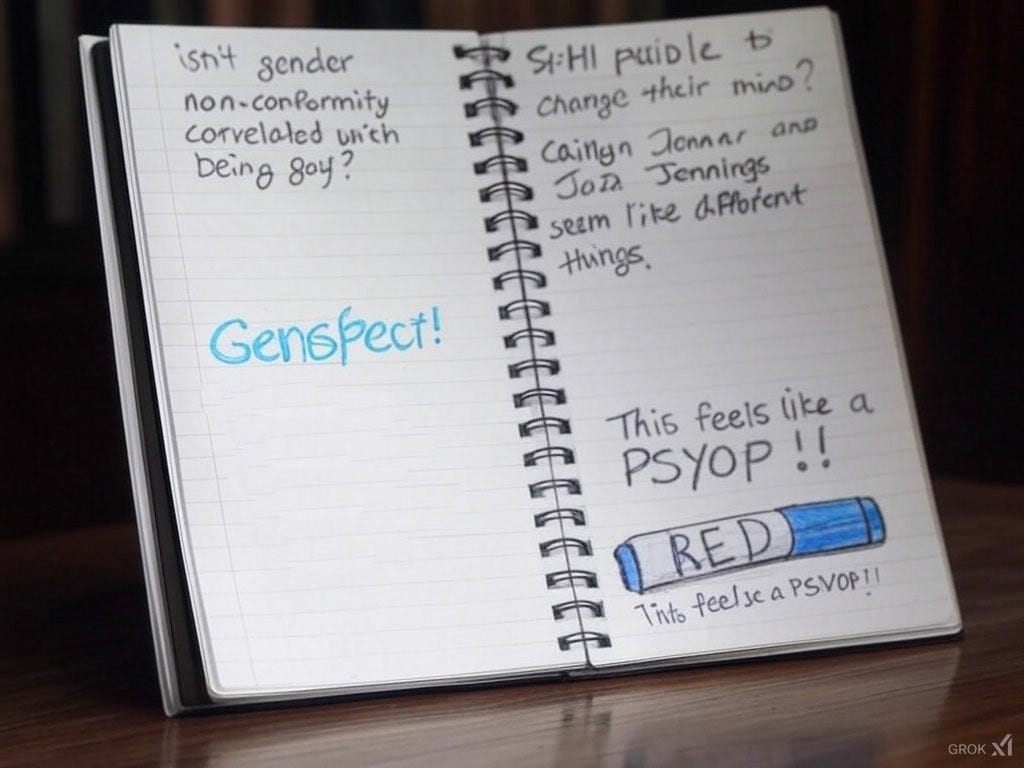 isn't gender
non-conformity
correlated with
being goy?
Genspect!
St:Hl puidle to
change their mino?
Caitlyn Jennar ano
Jozz Jennings
seem like different
things.
This feels like a
PSYOP !!
RED
feelse a PSVOP!!
GROK